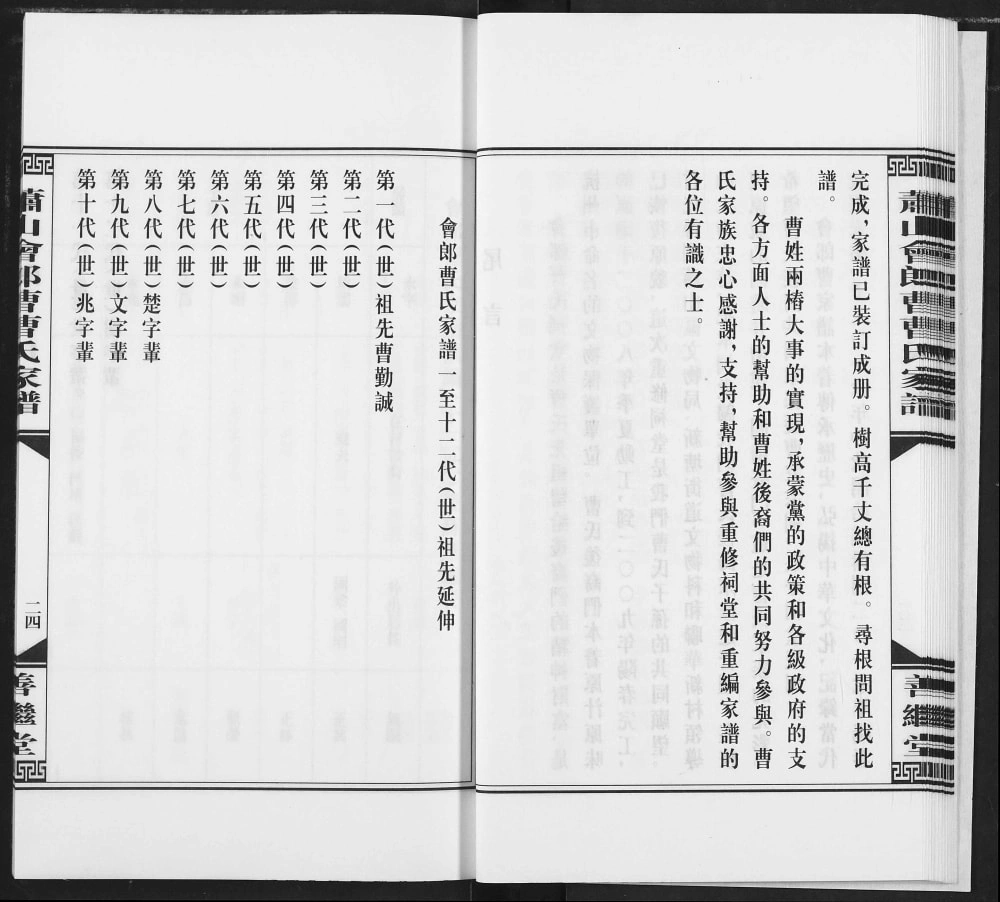 蕭山會郎曹氏家譜
善繼堂
完成，家譜已裝訂成册。樹高千丈總有根。尋根問祖找此
譜。
曹姓兩樁大事的實現，承蒙黨的政策和各級政府的支
持。各方面人士的幫助和曹姓後裔們的共同努力參與。曹
氏家族忠心感謝，支持，幫助參與重修祠堂和重編家譜的
各位有識之士。
會郎曹氏家譜一至十二代（世）祖先延伸
第一代（世）祖先曹勤誠
第二代（世）
第三代（世）
第四代（世）
第五代（世）
第六代（世）
第七代（世）
第八代（世）楚字輩
第九代（世）文字輩
第十代（世）兆字輩
蕭山會郎曹氏家譜
二四
善繼堂